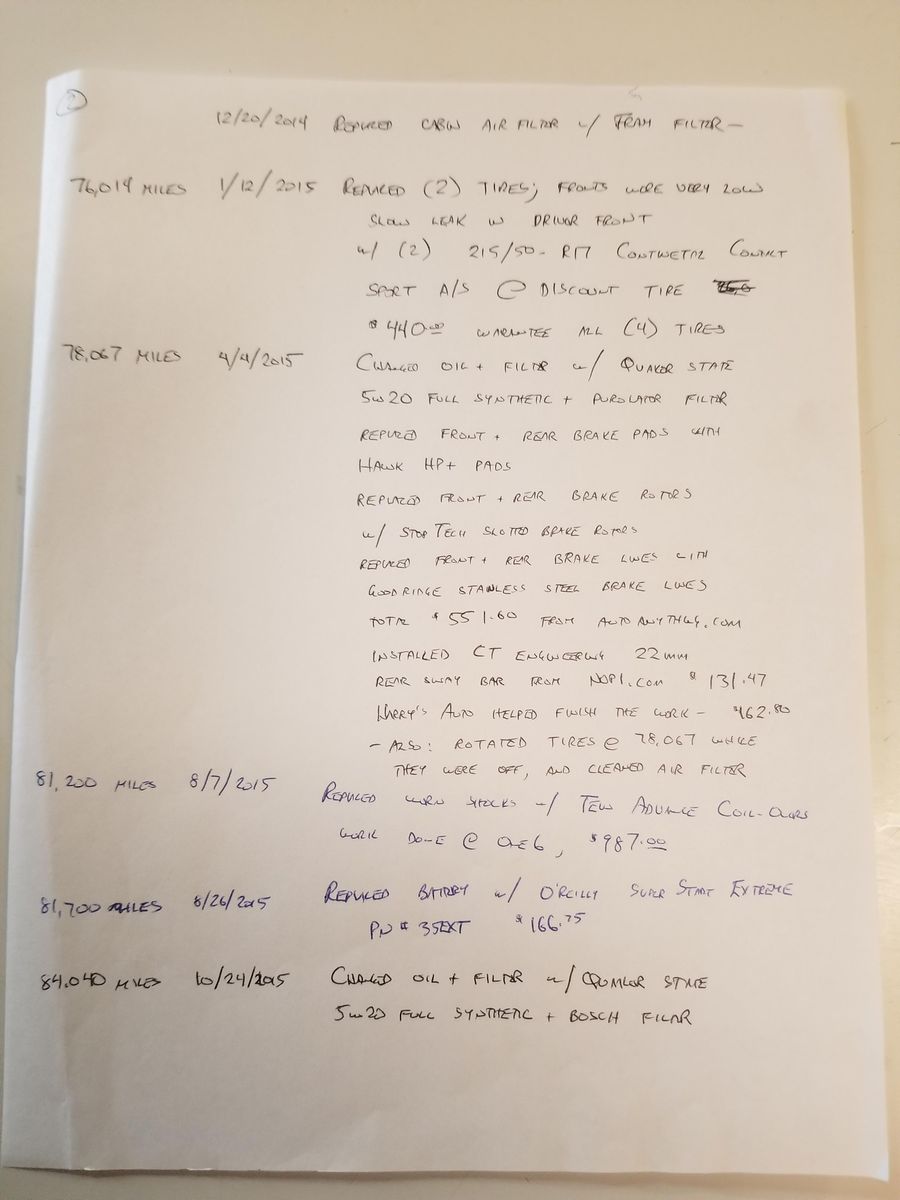 2
12/20/2014 REPLACED CABIN AIR FILTER w/ FRAM FILTER —
76,014 MILES 1/12/2015 REPLACED (2) TIRES; FRONTS WERE VERY LOW
SLOW LEAK IN DRIVER FRONT
w/ (2) 215/50-R17 CONTINETAL CONTACT
SPORT A/S @ DISCOUNT TIRE
$440.00 WARANTEE ALL (4) TIRES
78,067 MILES 4/4/2015 CHANGED OIL + FILTER w/ QUAKER STATE
5w20 FULL SYNTHETIC + PUROLATOR FILTER
REPLACED FRONT + REAR BRAKE PADS WITH
HAWK HP+ PADS
REPLACED FRONT + REAR BRAKE ROTORS
w/ STOPTECH SLOTTED BRAKE ROTORS
REPLACED FRONT + REAR BRAKE LINES WITH
GOODRINGE STAINLESS STEEL BRAKE LINES
TOTAL $551.60 FROM AUTOANYTHING.COM
INSTALLED CT ENGINEERING 22mm
REAR SWAY BAR FROM NOPI.COM $131.47
HARRY'S AUTO HELPED FINISH THE WORK — $462.80
— ALSO: ROTATED TIRES @ 78,067 WHILE
THEY WERE OFF, AND CLEANED AIR FILTER
81,200 MILES 8/7/2015 REPLACED WORN SHOCKS w/ TEIN ADVANCE COIL-OVERS
WORK DONE @ ONE6, $987.00
81,700 MILES 8/26/2015 REPLACED BATTERY w/ O'REILLY SUPER START EXTREME
PN# 35EXT $166.75
84,040 MILES 10/24/2015 CHANGED OIL + FILTER w/ QUAKER STATE
5w20 FULL SYNTHETIC + BOSCH FILTER